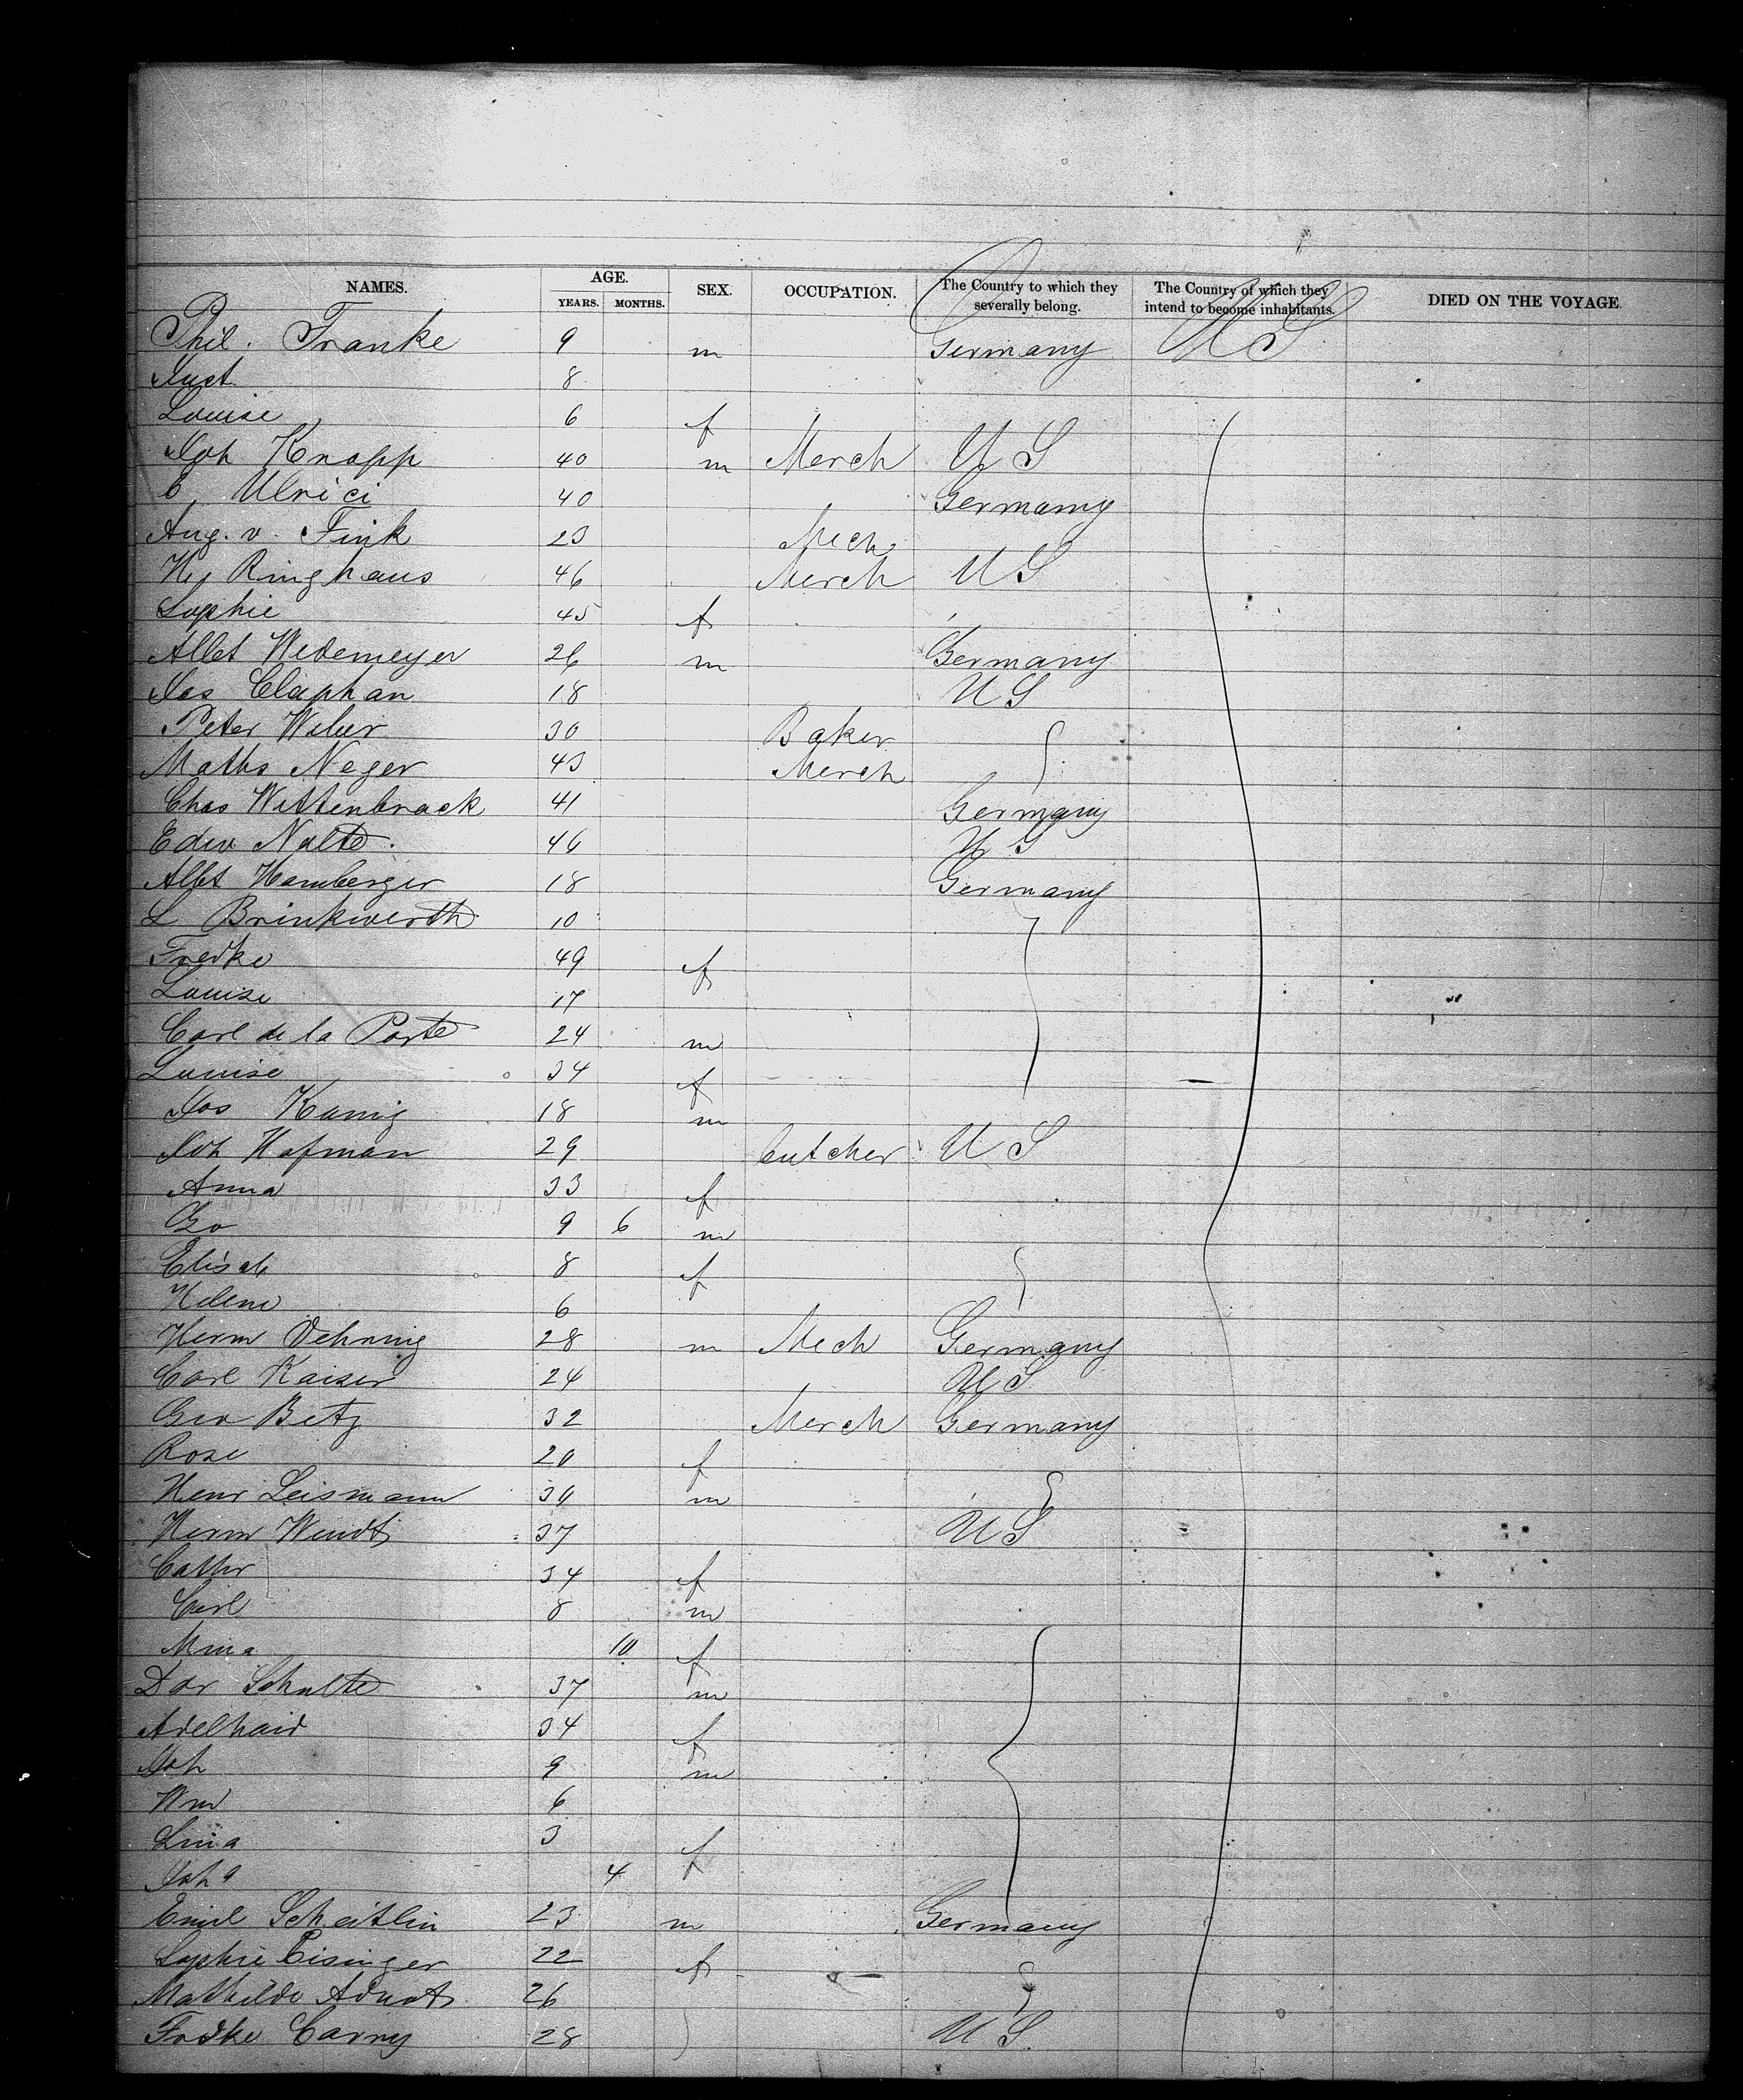 NAMES. AGE. YEARS. MONTHS. SEX. OCCUPATION. The Country to which they severally belong. The Country of which they intend to become inhabitants. DIED ON THE VOYAGE.
Phil. Franke 9 m Germany U S
Just 8
Louise 6 f
Joh Knapp 40 m Merch U S
E. Ulrici 40 Germany
Aug. v. Fink 23 Mech
Hy Ringhaus 46 Merch U S
Sophie 45 f
Albt Wedemeyer 26 m Germany
Jos Claphan 18 U S
Peter Weber 30 Baker
Maths Neger 43 Merch
Chas Wittenbrack 41 Germany
Edw Nolte 46 U S
Albt Hamberger 18 Germany
L Brinkwerth 10
Fredke 49 f
Louise 17
Carl de la Porte 24 m
Louise 34 f
Jos Kunig 18 m
Joh Hofman 29 butcher U S
Anna 33 f
Go 9 6 m
Elisab 8 f
Helene 6
Herm Oehning 28 m Mech Germany
Carl Kaiser 24 U S
Geo Betz 32 Merch Germany
Rose 20 f
Henr Leismann 30 m
Herm Wendt 37 U S
Cathr 34 f
Carl 8 m
Mina 10 f
Dor Schulte 37 m
Adelhaid 34 f
Joh 9 m
Wm 6
Lina 3 f
Joha 4
Emil Scheitlin 23 m Germany
Sophie Eisinger 22 f
Mathilde 26
Fredke Carny 28 U S